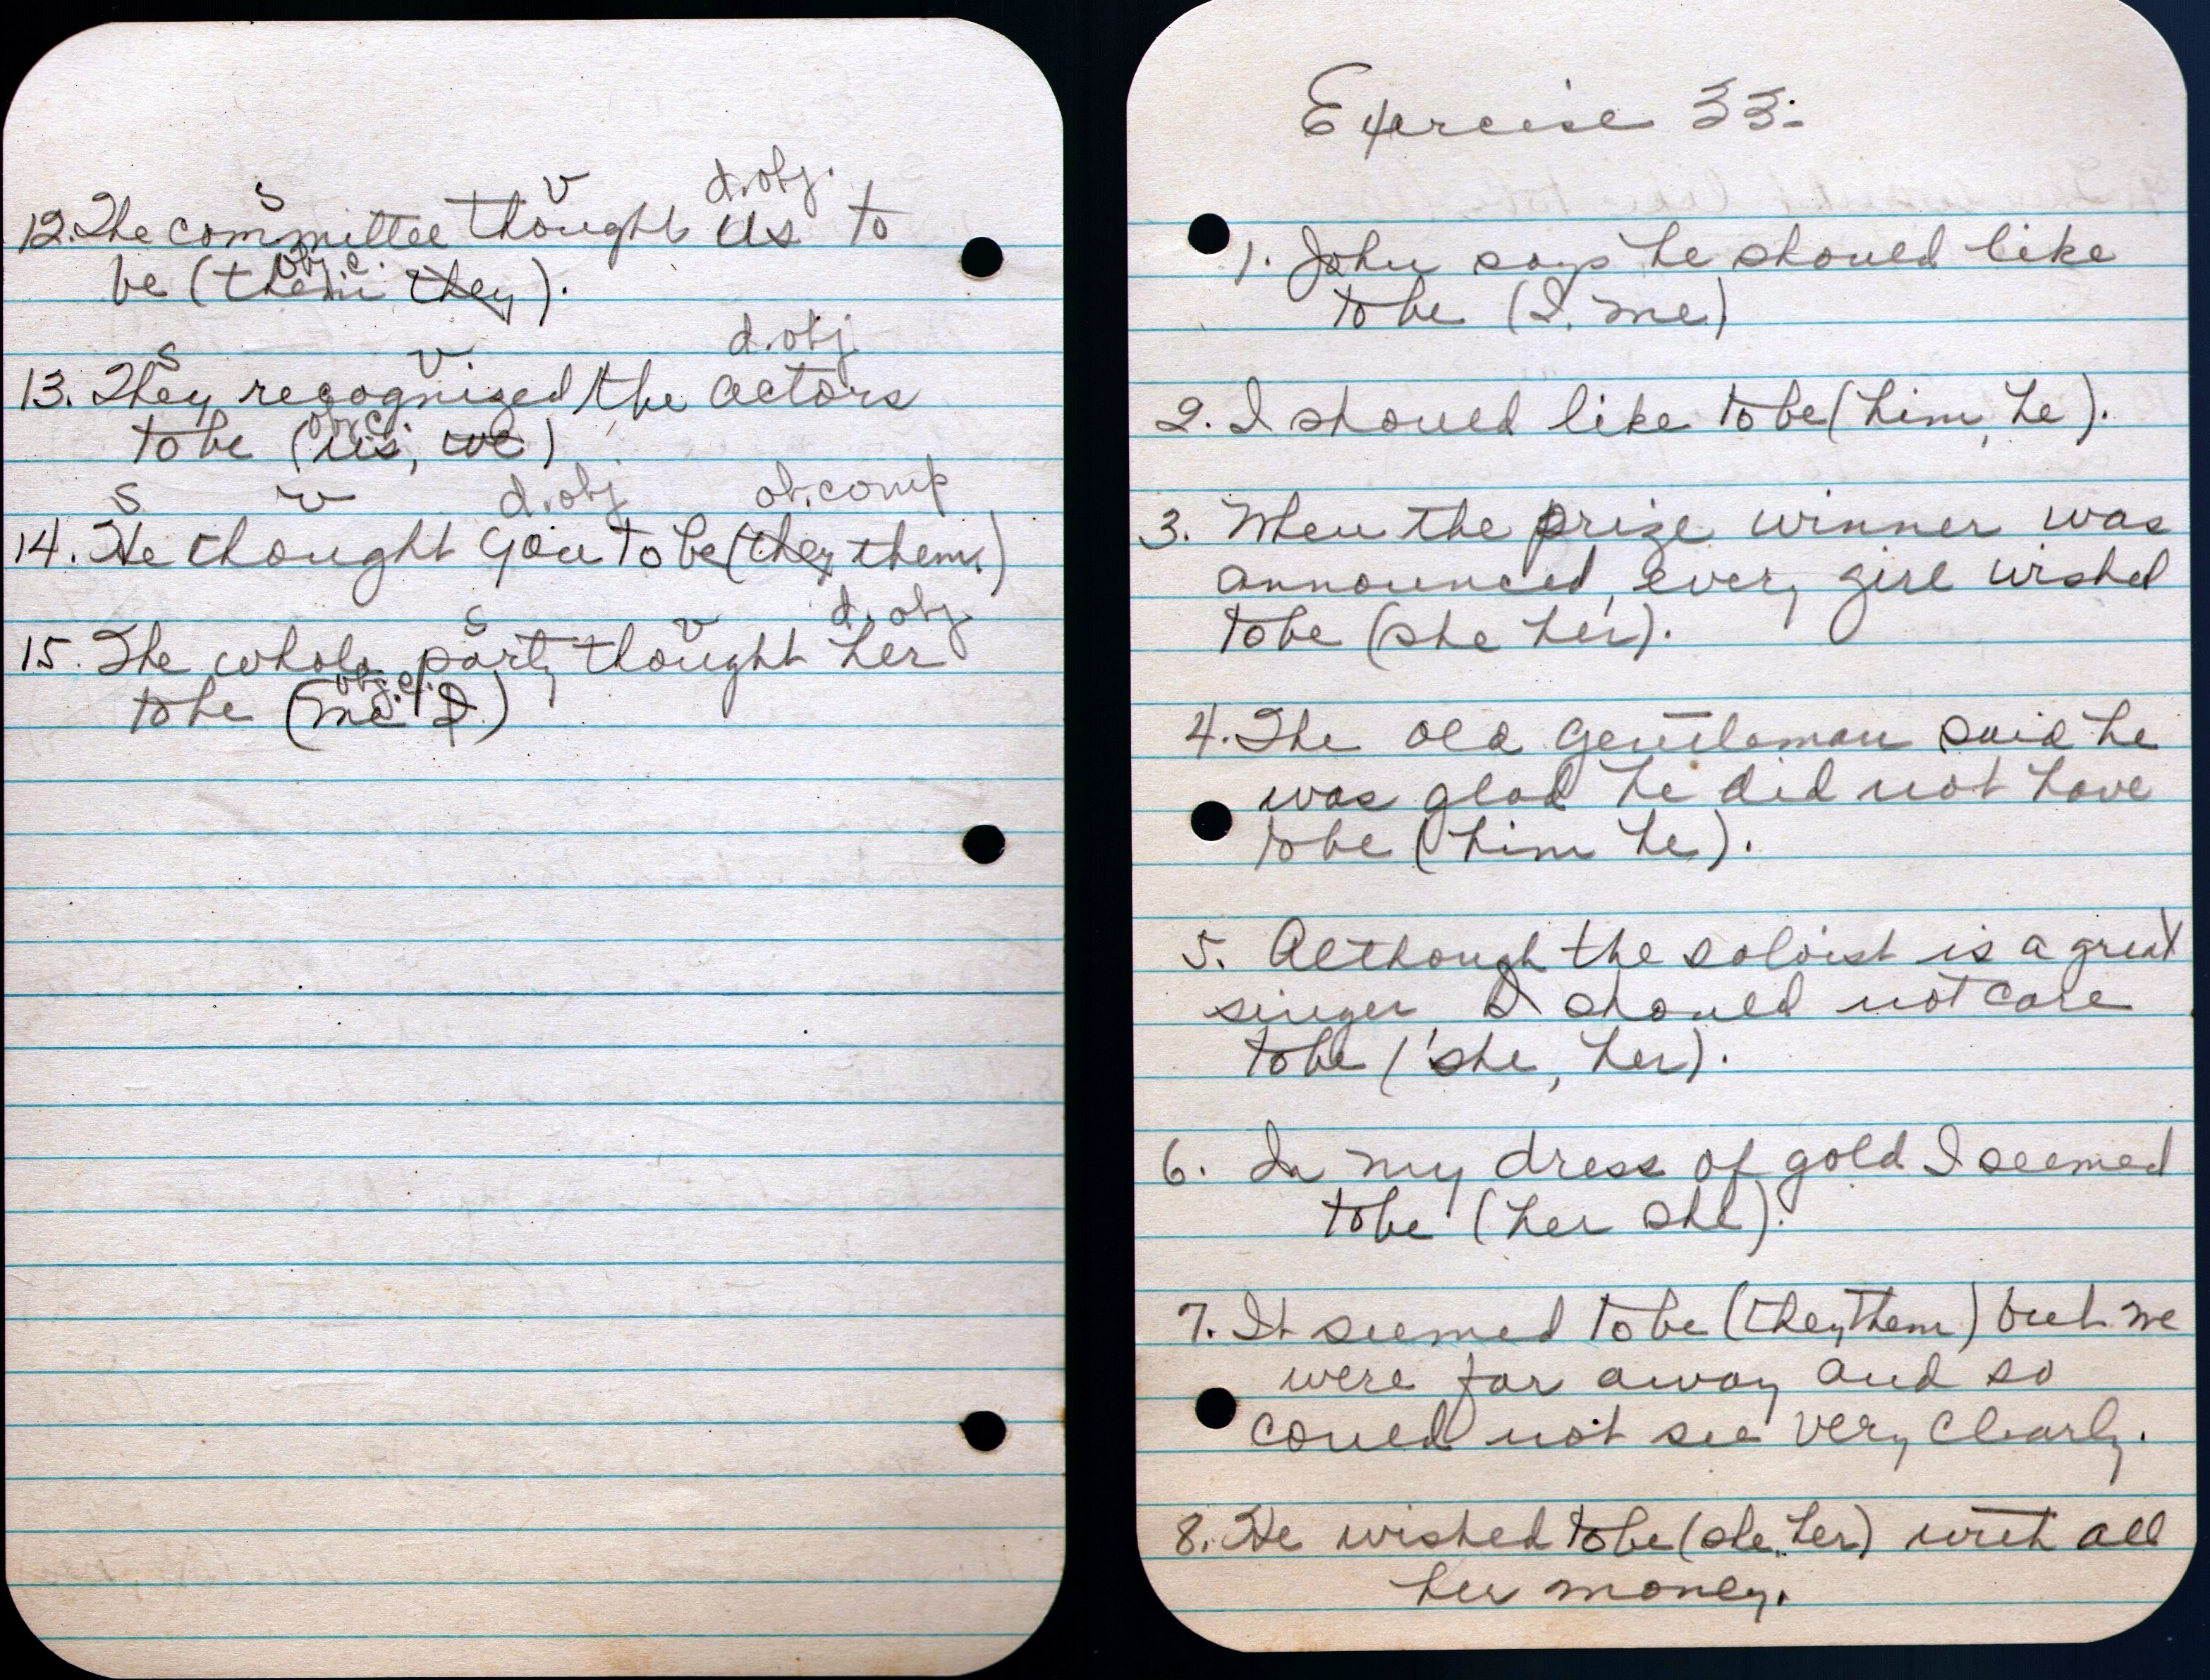 s v d.obj.
12. The committee thought us to
obj. c.
be (them they).
d.obj
s v
13. They recognized the actors
obj c.
to be (us, we)
s v d.obj ob. comp
14. He thought you to be (they them.)
s v d. obj
15. The whole party thought her
obj. c.
to be (me I.)
Exercise 33:
1. John says he should like
to be (I, me)
2. I should like to be (him, he).
3. When the prize winner was
announced, every girl wished
to be (she her).
4. The old gentleman said he
was glad he did not have
to be (him he).
5. Although the soloist is a great
singer I should not care
to be (she, her).
6. In my dress of gold I seemed
to be (her she).
7. It seemed to be (they them) but we
were far away and so
could not see very clearly.
8. He wished to be (she, her) with all
her money.